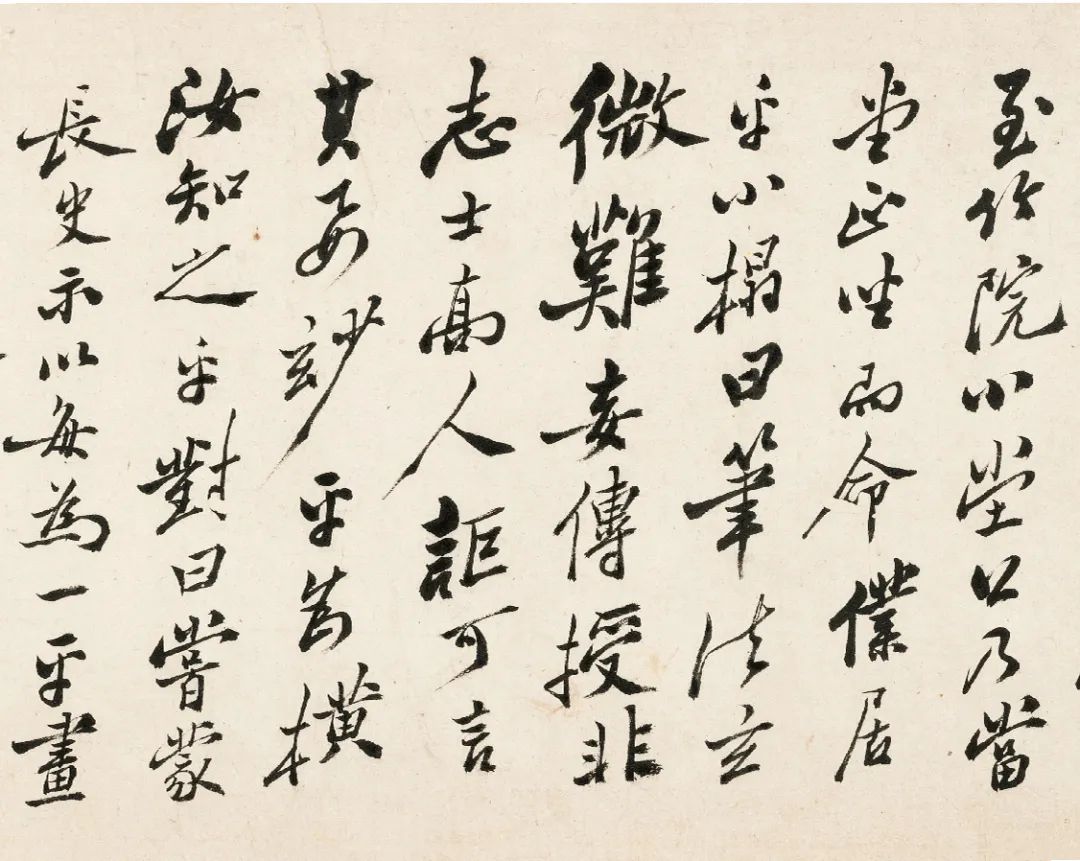 至竹院小堂公乃當
堂正坐而命僕居
乎小榻曰筆法玄
微難妄傳授非
志士高人詎可言
其要妙平為橫
汝知之乎對曰嘗蒙
長史示以每為一平畫